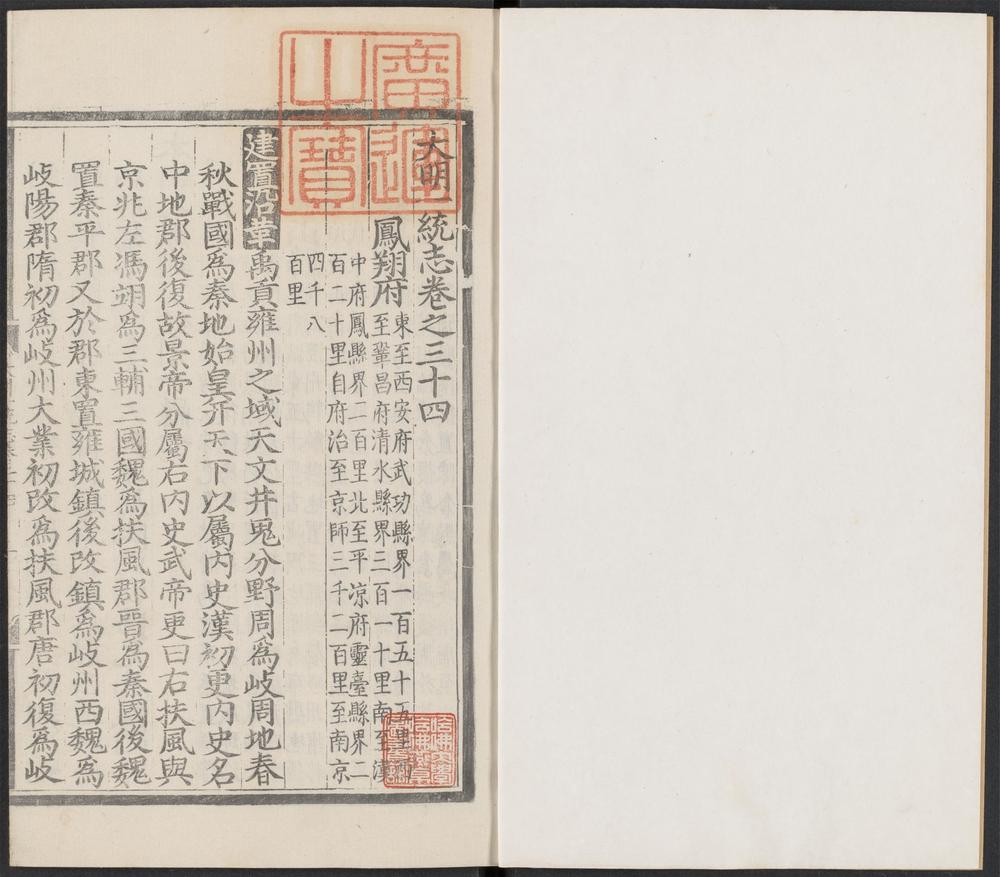 大明一統志卷之三十四
鳳翔府
東至西安府武功縣界一百五十五里西
至鞏昌府清水縣界三百一十里南至漢
中府鳳縣界二百里北至平涼府靈臺縣界二
百二十里自府治至京師三千二百里至南京
四千八
百里
建置沿革禹貢雍州之域天文井鬼分野周爲岐周地春
秋戰國爲秦地始皇幷天下以屬內史漢初更內史名
中地郡後復故景帝分屬右內史武帝更曰右扶風與
京兆左馮翊爲三輔三國魏爲扶風郡晉爲秦國後魏
置秦平郡又於郡東置雍城鎮後改鎮爲岐州西魏爲
岐陽郡隋初爲岐州大業初改爲扶風郡唐初復爲岐
廣運
之寶